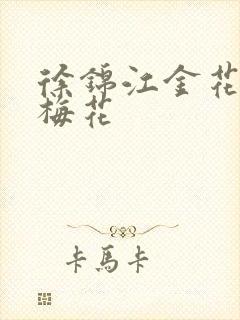 徐锦江金花
梅花
卡馬卡